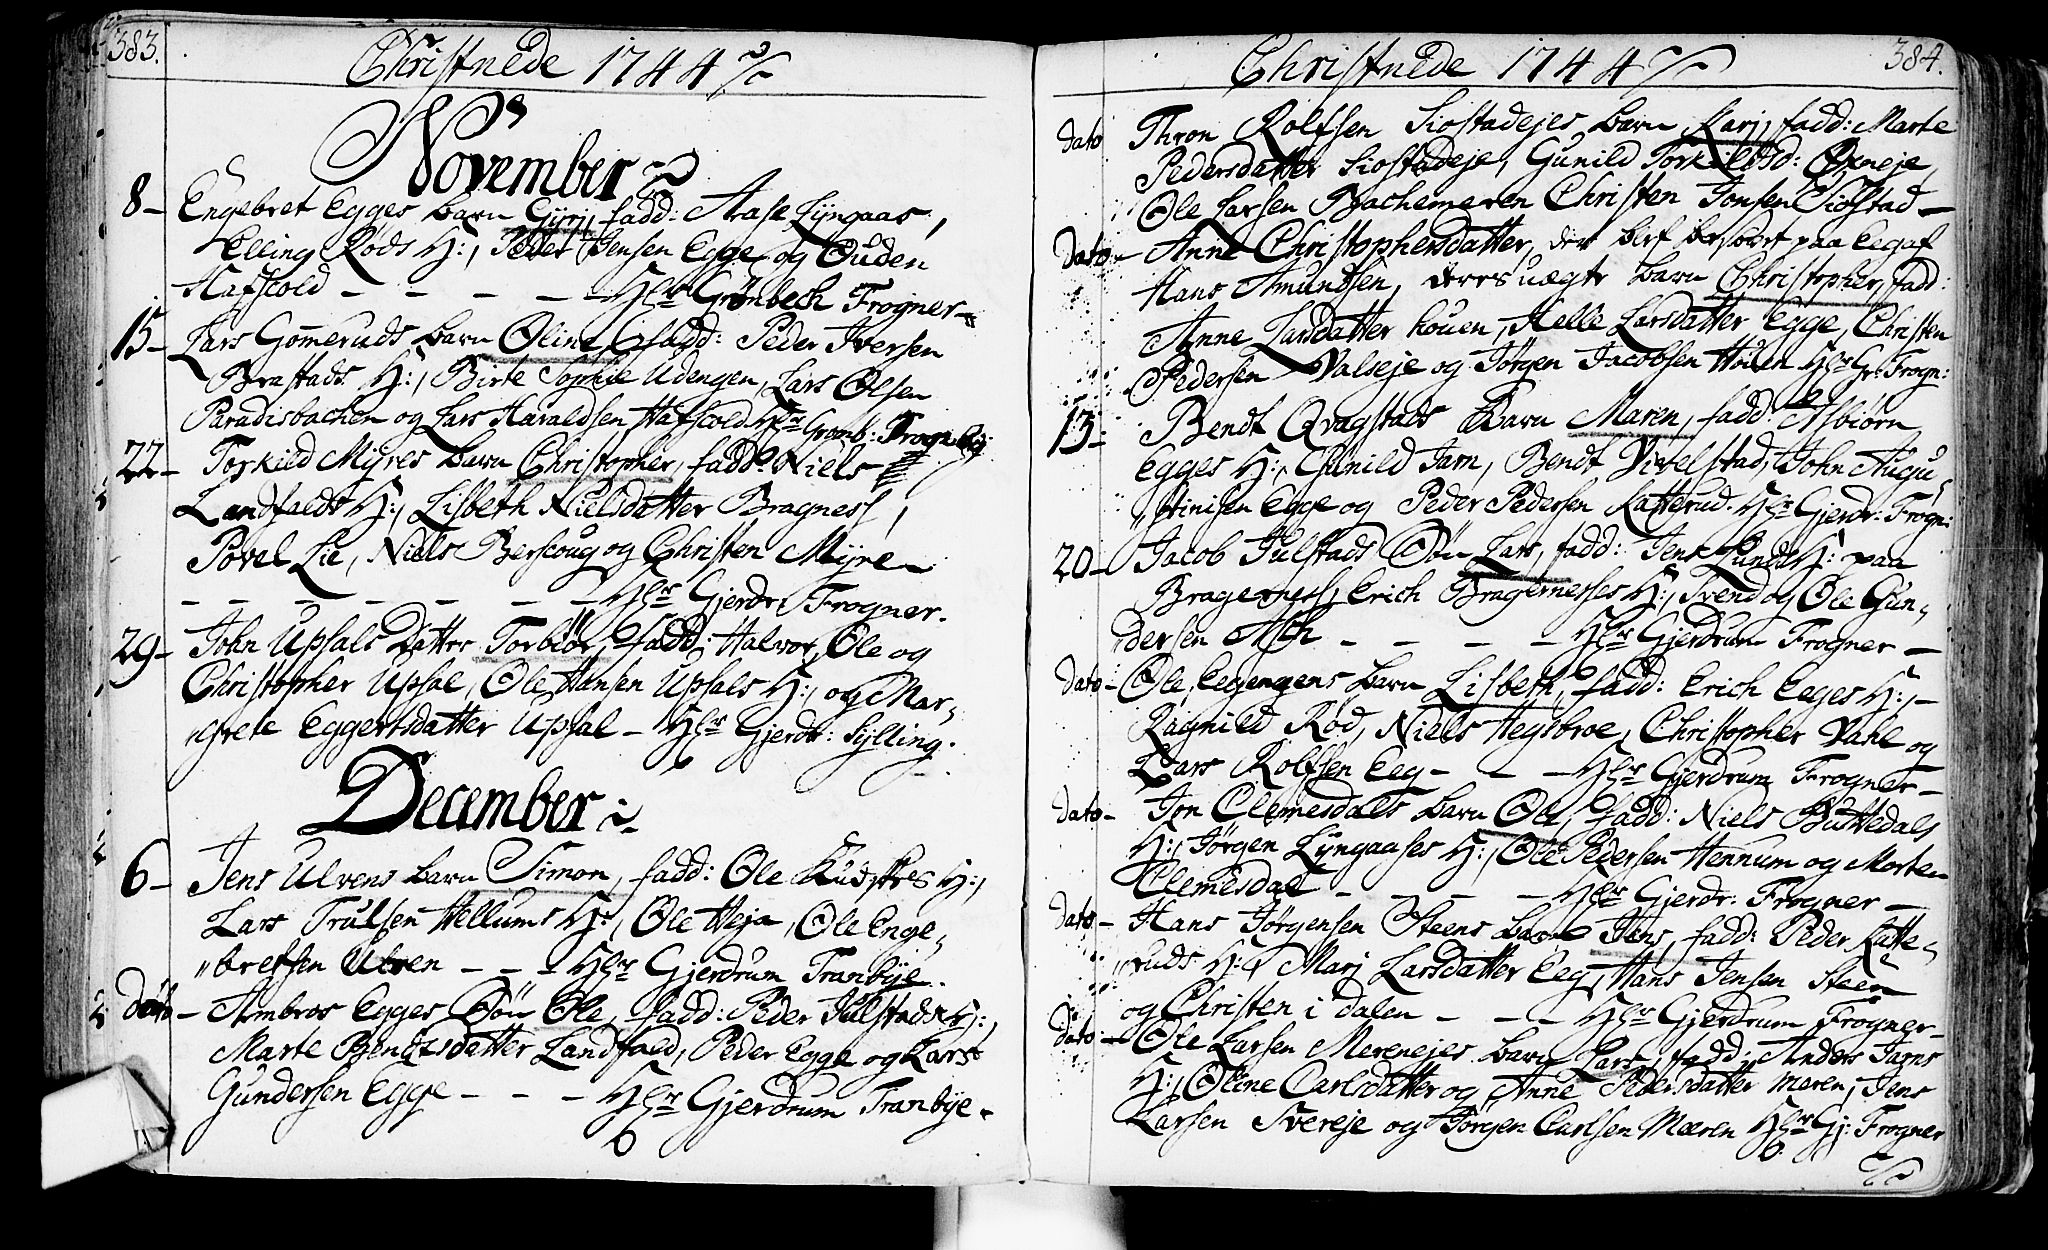 383.
Christnede 1744
November
8 - Engebret Egges barn Gyri, fadd: Aase Lyngaas,
Elling Røds H:, Peder Jensen Egge og Ouden
Hafscold - - - - - Hr Grønbech Frogner -
15 - Lars Gomeruds barn Oline, fadd: Peder Iversen
Brastads H:, Birte Sophie Udengen, Lars Olsen
Paradisbachen og Lars Haraldsen Hafscold Hr Grønb:
22 - Torkild Myres barn Christopher, fadd: Niels
Landfalds H:, Lisbeth Nielsdatter Bragness,
Povel Lie, Niels Berscoug og Christen Myre -
- - - - - - Hr Gjerdr: Frogner.
29 - John Upsals Datter Torbiør, fadd: Halvor, Ole og
Christopher Upsal, Ole Hansen Upsals H:, og Mar-
grete Eggertsdatter Upsal - Hr Gjerdr: Sylling.
December
6 - Jens Ulvens barn Simon, fadd: Ole H:,
Lars Trulsen Hellums H:, Ole Heja, Ole Enge-
bretsen Ulven - - - Hr Gjerdrum Tranbÿe.
Dato - Ambros Egges Søn Ole, fadd: Peder Julstads H:,
Marte Bendtsdatter Landfald, Peder Egge og Lars
Gundersen Egge - - - Hr Gjerdrum Tranbÿe -
Christnede 1744
384.
Dato Thron Rolfsen Siostadejes barn Kari, fadd: Marte
Pedersdatter Siostadeje, Gunild Torkildsd: Oxneje,
Ole Larsen Bachemeren Christen Jonsen Siøstad -
Dato - Anne Christophersdatter, paa Eeg af
Hans Amundsen, deres uægte barn Christopher, fadd:
Anne Larsdatter houen, Helle Larsdatter Egge, Christen
Pedersen Valseje og Jørgen Jacobsen Houen Hr Gr: Frogn:
13 - Bendt Qvagstads Barn Maren, fadd: Asbiørn
Egges H:, Gunild Jarn, Bendt Vivelstad, John Augu-
stinisen Egge og Peder Pedersen Katterud. Hr Gjerdr: Frogn:
20 - Jacob Julstads Søn Lars, fadd: Jens Lunds H: paa
Bragerness, Erich Bragernesses H:, Svend og Ole Gun-
dersen Ash - - - - Hr Gjerdrum Frogner -
Dato - Ole Eegengens barn Lisbeth, fadd: Erich Eeges H:, -
Ragnild Rød, Niels Hegsbroe, Christopher Vahl og
Lars Rolfsen Eeg - - - Hr Gjerdrum Frogner -
Dato - Jon Clemesdals barn Ole, fadd: Niels Buttedals
H:, Jørgen Lyngaases H:, Ole Pedersen Hennum og Morten
Clemesdal - - - - - Hr Gjerdr: Frogner -
Dato - Hans Jørgensen Steens barn Jens, fadd: Peder Katte-
ruds H:, Mari Larsdatter Eeg, Hans Jensen Steen
og Christen i dalen - - - Hr Gjerdrum Frogner -
Dato - Ole Larsen Merenejes barn Lars, fadd: Anders Jarns
H:, Oline Carlsdatter og Anne Pedersdatter Meren, Jens
Larsen Svereje og Jørgen Carlsen Mæren Hr Gj: Frogner